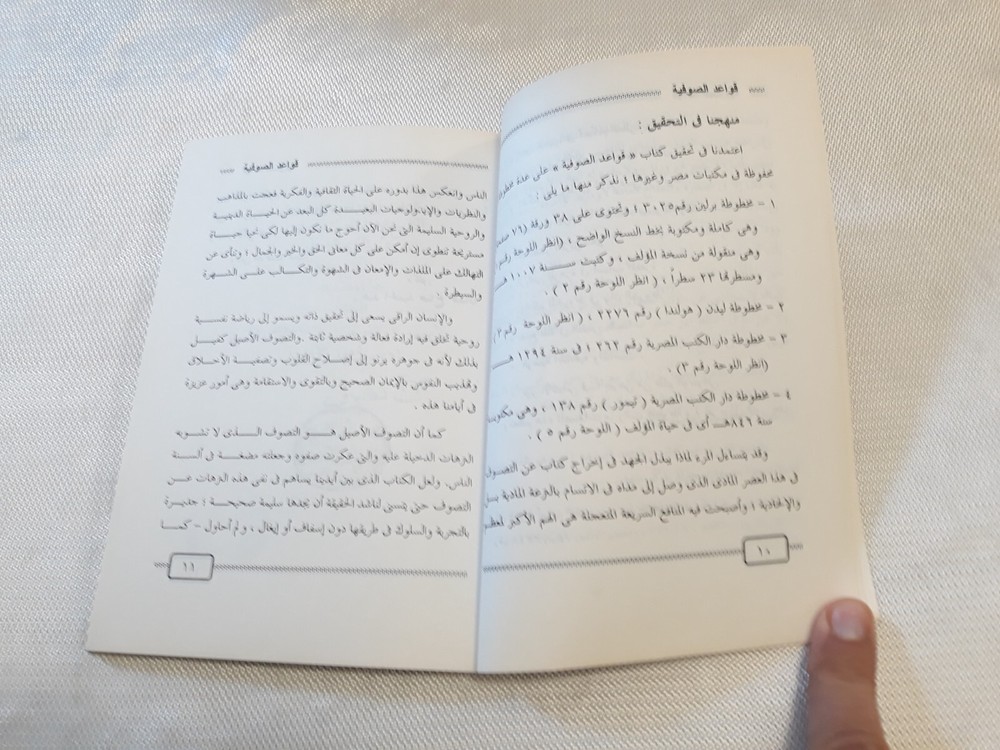 قواعد الصوفية
منهجنا فى التحقيق :
اعتمدنا فى تحقيق كتاب « قواعد الصوفية » على عدة
محفوظة فى مكتبات مصر وغيرها ؛ نذكر منها ما يلى :
١ - مخطوطة برلين رقم ٣٠٢٥ ؛ وتحتوى على ٣٨ ورقة (٧٦
وهى كاملة ومكتوبة بخط النسخ الواضح ، (انظر اللوحة رقم
وهى منقولة من نسخة المؤلف ، وكتبت ســـنة ١٠٠٧ هـــ
ومسطرتها ٢٣ سطراً ، ( انظر اللوحة رقم ٢ ) .
٢ - مخطوطة ليدن ( هولندا ) رقم ٢٢٧٦ ، ( انظر اللوحة رقم
٣ - مخطوطة دار الكتب المصرية رقم ٢٦٢ ؛ فى سنة ١٢٩٤ هـــ
(انظر اللوحة رقم ٣) .
٤ - مخطوطة دار الكتب المصرية ( تيمور ) رقم ١٣٨ ، وهى
سنة ٨٤٦هـــ أى فى حياة المؤلف ( اللوحة رقم ٥ ) .
وقد يتساءل المرء لماذا يبذل الجهد فى إخراج كتاب عن التصوف
فى هذا العصر المادى الذى وصل إلى مداه فى الاتسام بالنزعة المادية
والإلحادية ؛ وأصبحت فيه المنافع السريعة المتعجلة هى الهم الأكبر
١٠
قواعد الصوفية
الناس وانعكس هذا بدوره على الحياة الثقافية والفكرية فعجت بالمذاهب
والنظريات والإيديولوجيات البعيـــدة كل البعد عن الحيـــاة الدينية
والروحية السليمة التى نحن الآن أحوج ما نكون إليها لكى نحيا حيـــاة
مستريحة تنطوى إن أمكن على كل معانى الحق والخير والجمال ؛ وتنأى عن
التهالك على الملذات والإمعان فى الشهوة والتكـــالب علـــى الشهرة
والسيطرة .
والإنسان الراقى يسعى إلى تحقيق ذاته ويسمو إلى رياضة نفســـية
روحية تخلق فيه إرادة فعالة وشخصية ثابتة .والتصوف الأصيل كفيـــل
بذلك لأنه فى جوهره يرنو إلى إصـــلاح القلوب وتصفيـــة الأخـــلاق
وتهذيب النفوس بالإيمان الصحيح وبالتقوى والاستقامة وهى أمور عزيزة
فى أيامنا هذه .
كما أن التصوف الأصيل هـــو التصوف الـــذى لا تشوبه
الترهات الدخيلة عليه والتى عكرت صفوه وجعلته مضغـــة فى ألســـنة
الناس. ولعل الكتاب الذى بين أيدينا يساهم فى نفى هذه الترهات عـــن
التصوف حتى يتسنى لناشد الحقيقة أن يجدها سليمة صحيحـــة ؛ جديـــرة
بالتجربة والسلوك فى طريقها دون إسفاف أو إيغال ، ولم أحاول - كمـــا
١١